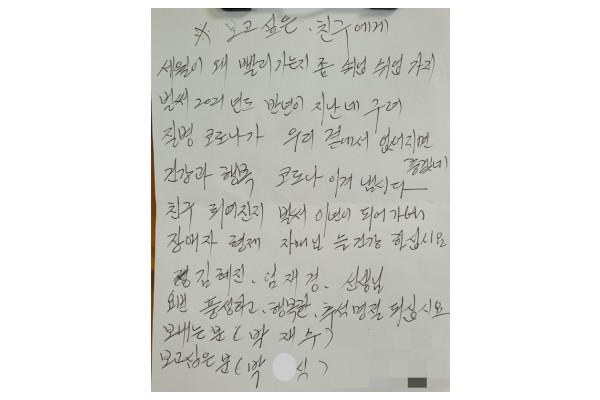 ※ 보고싶은 · 친구에게
세월이 왜 빨리가는지 좀 쉬엄 쉬엄 가지
벌써 2021년도 반년이 지난네 구려
질병 코로나가 우리 곁에서 없어지면
좋겠네
건강과 행복 코로나 이겨 냅시다
친구 헤여진지 벌써 이년이 되어가네
장애자 형제 자매님 늘건강 하십시요
김혜진. 엄재경. 선생님
요번 풍성하고. 행복한. 추석명절 되십시요
보내는분 ( 박 재 수 )
보고싶은분 ( 박 식 )